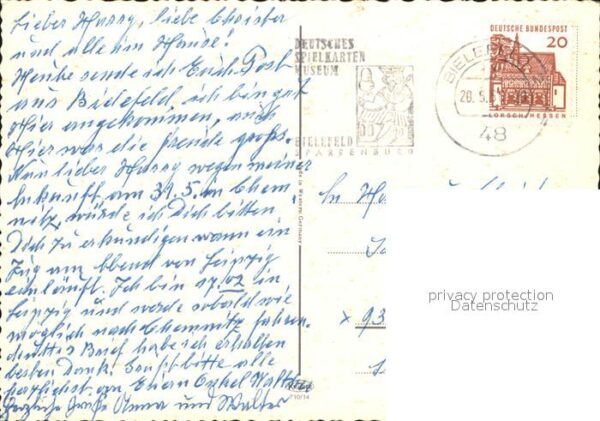 Lieber Harry, liebe Christer
und alle im Hause!
Heute sende ich Euch Post
aus Bielefeld, ich bin gut
hier angekommen, auch
hier war die Freude groß.
Nun lieber Harry wegen meiner
Ankunft am 31.5. in Chem
nitz, würde ich Dich bitten,
Dich zu erkundigen wann ein
Zug am Abend von Leipzig
einläuft. Ich bin 17.02 in
Leipzig und werde sobald wie
möglich nach Chemnitz fahren.
Brief habe ich erhalten
besten Dank! Sonst bitte alle
herzlichst von Onkel Walter
Herzliche Grüße Anna und Walter
DEUTSCHES
SPIELKARTEN
MUSEUM
BIELEFELD
SPARRENBURG
BIELEFELD
20.5.
48
DEUTSCHE BUNDESPOST
20
LORSCH/HESSEN
in Western Germany
10/14
An
x 93
privacy protection
Datenschutz